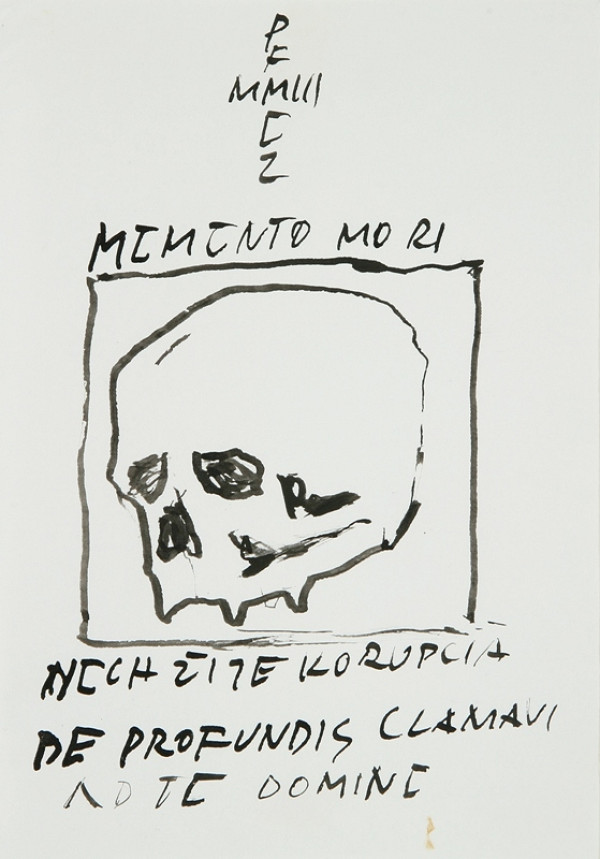 PE
MMIII
C
Z
MEMENTO MORI
NECH ŽIJE KORUPCIA
DE PROFUNDIS CLAMAVI
AD TE DOMINE